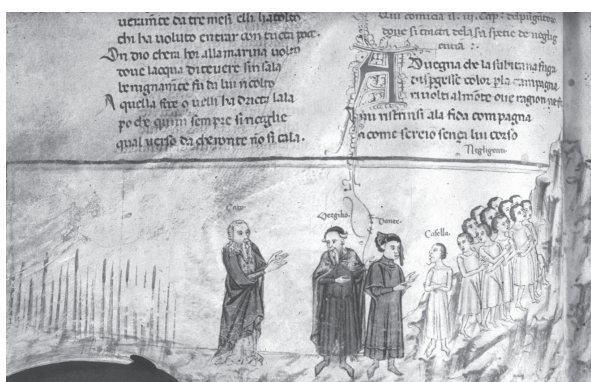 da tre mesi elli ha tolto
chi ha voluto entrar con tucta pace.
On dio chera hor alla marina volto
doue lacqua di teuere sin sala
fu da lui ricolto
A quella foce o uelli ha dricta lala
po che quiui sempre si
qual uerso da cheronte nō si cala.
.iii. cap. del
doue si tracta dela
entia :-
Aduegna che la subitana fuga
dispgesse color p la campagna
riuolti al mōte oue ragion
mi strinsi ala fida compagna
a come sereio sença lui corso
Negligenti.
Cato.
Vergilio.
Dante.
Casella.